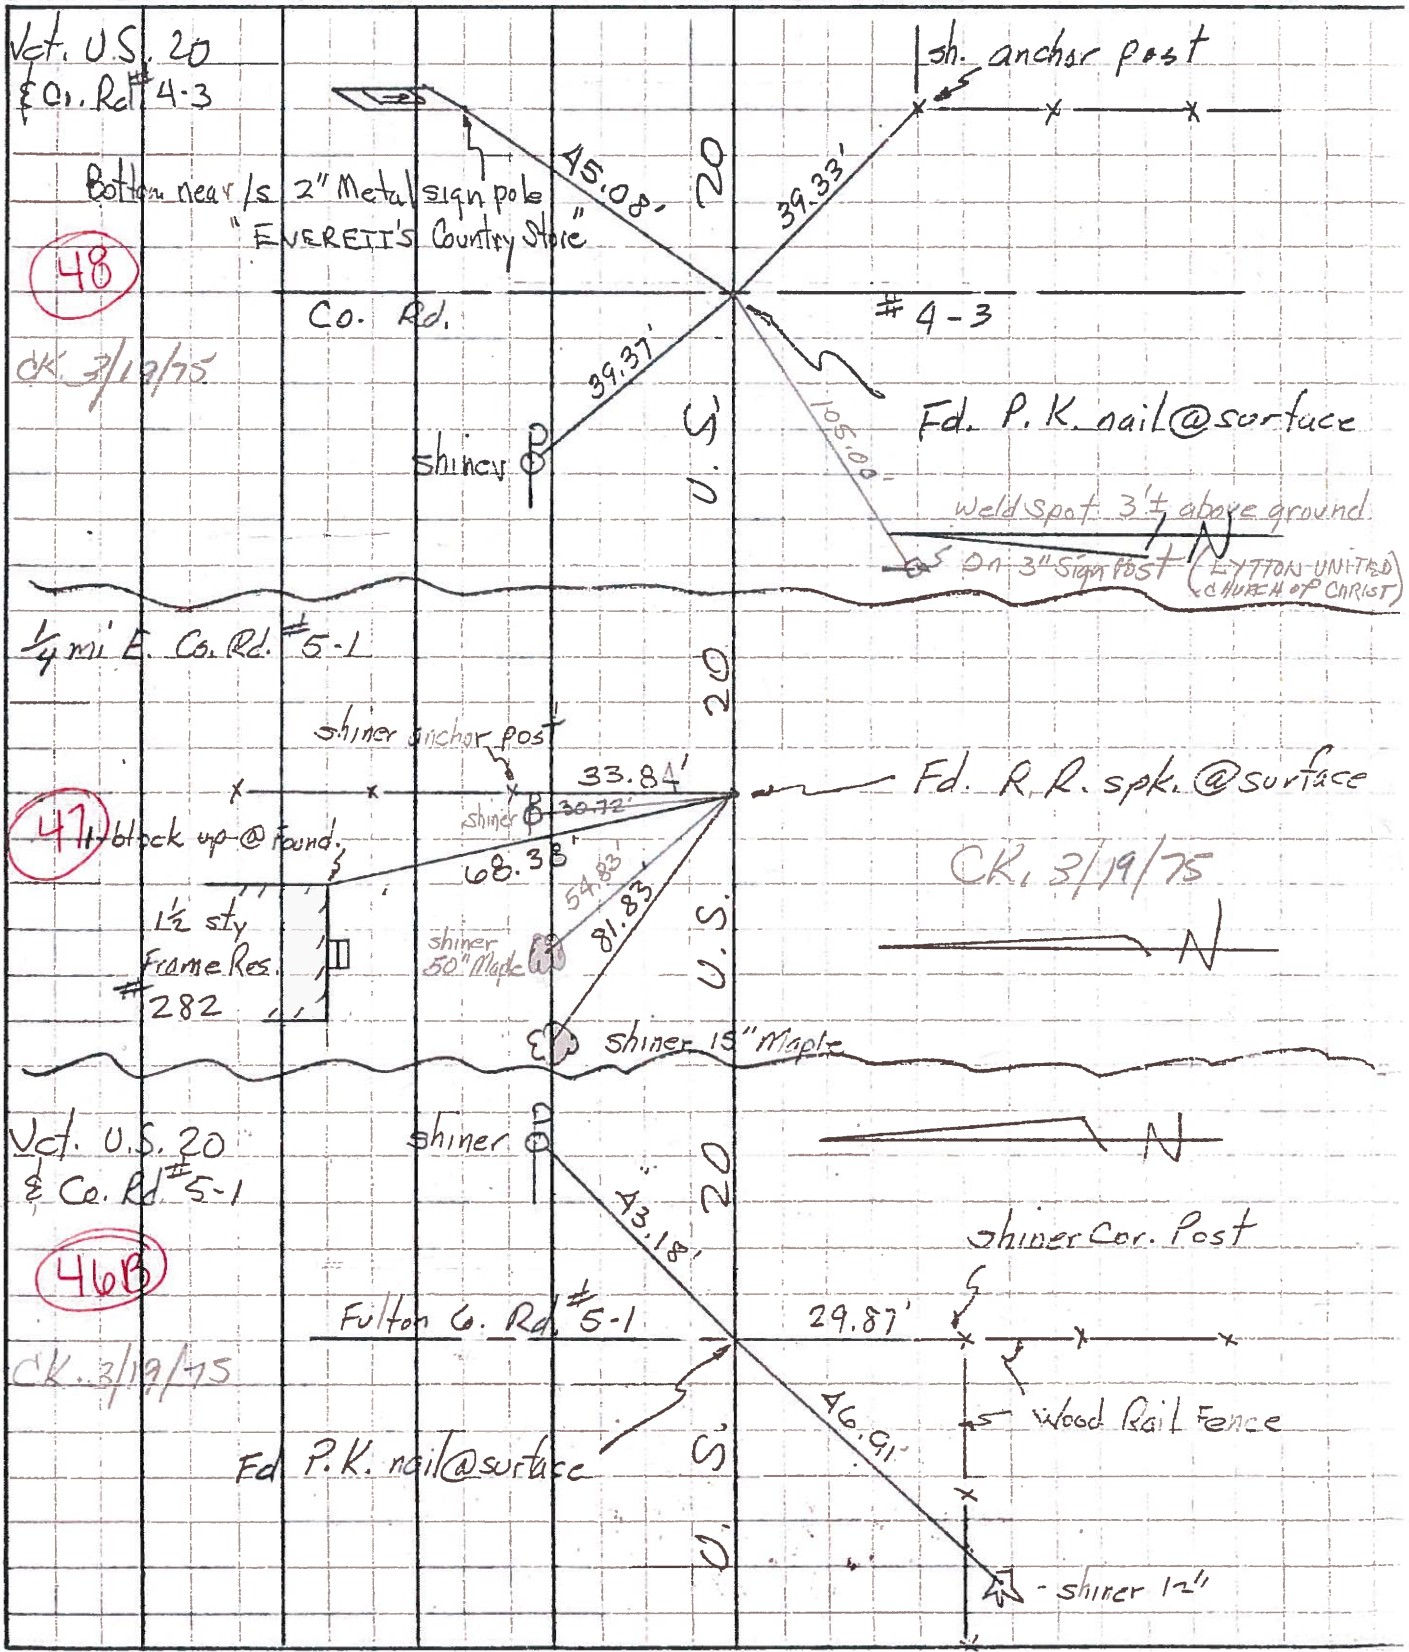 Jct. U.S. 20
& Co. Rd # 4-3
sh. anchor post
45.08'
20
39.33'
Bottom near /s 2" Metal sign pole
"EVERETT'S Country Store"
48
Co. Rd.
# 4-3
CK 3/19/75
39.37'
shiner
U.S.
105.00'
Fd. P.K. nail @ surface
Weld Spot 3'± above ground
N
On 3" Sign Post (LYTTON UNITED
CHURCH OF CHRIST)
1/4 mi E. Co. Rd. # 5-1
20
shiner anchor post
33.84'
Fd. R.R. spk. @ surface
47
shiner
30.72'
1-block up @ Found.
68.38'
54.83'
81.83
CK. 3/19/75
1½ sty
Frame Res.
# 282
shiner
50" Maple
U.S.
N
shiner 15" Maple
Jct. U.S. 20
& Co. Rd # 5-1
shiner
20
N
43.18'
shiner Cor. Post
46B
Fulton Co. Rd. # 5-1
29.87'
CK. 3/19/75
46.91
Wood Rail Fence
Fd P.K. nail @ surface
U.S.
- shiner 12"